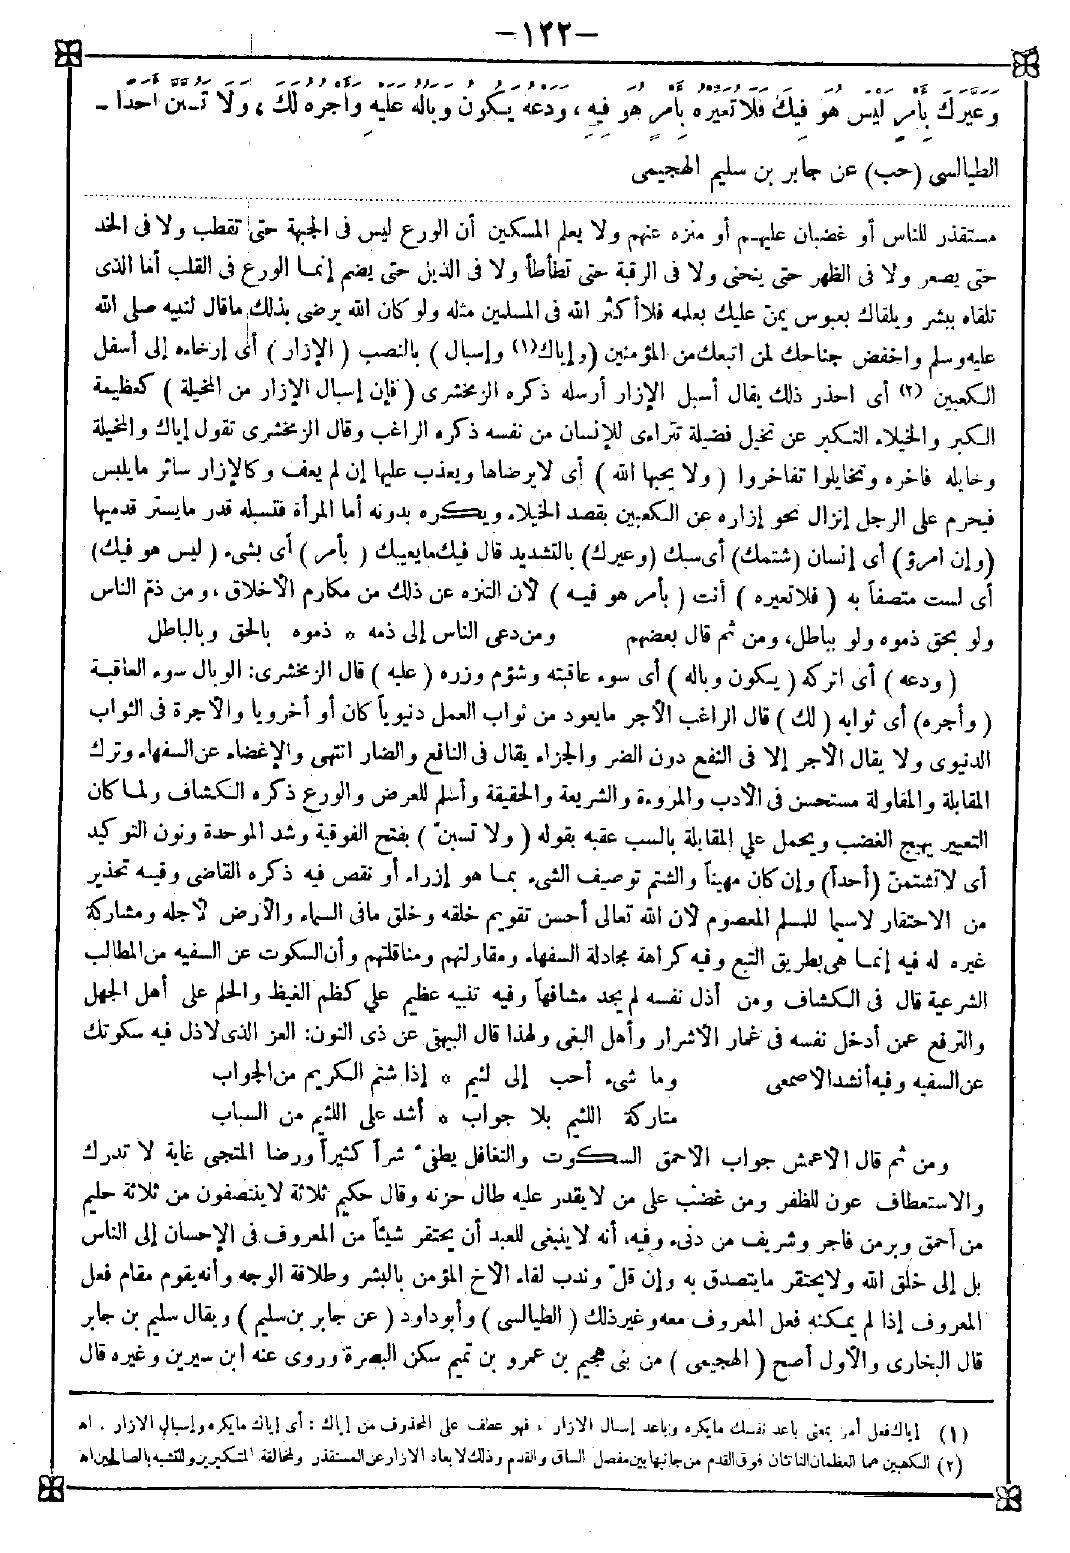 -١٢٢-
وَعَيَّرَكَ بِأَمْرٍ لَيْسَ هُوَ فِيكَ فَلَا تُعَيِّرْهُ بِأَمْرٍ هُوَ فِيهِ، وَدَعْهُ يَكُونُ وَبَالُهُ عَلَيْهِ وَأَجْرُهُ لَكَ، وَلَا تَسُبَّنَّ أَحَدًا -
الطيالسى (حب) عن جابر بن سليم الهجيمى
مستقذر للناس أو غضبان عليهم أو منزه عنهم ولا يعلم المسكين أن الورع ليس فى الجبهة حتى تقطب ولا فى الخد
حتى يصعر ولا فى الظهر حتى ينحنى ولا فى الرقبة حتى تطأطأ ولا فى الذيل حتى يضم إنما الورع فى القلب أما الذى
تلقاه ببشر ويلقاك بعبوس يمن عليك بعلمه فلا أكثر الله فى المسلمين مثله ولو كان الله يرضى بذلك ماقال لنبيه صلى الله
عليه وسلم واخفض جناحك لمن اتبعك من المؤمنين (وإياك(١) وإسبال) بالنصب (الإزار) أى إرخاءه إلى أسفل
الكعبين (٢) أى احذر ذلك يقال أسبل الإزار أرسله ذكره الزمخشرى (فإن إسبال الإزار من المخيلة) كعظيمة
الكبر والخيلاء التكبر عن تخيل فضيلة تتراءى للإنسان من نفسه ذكره الراغب وقال الزمخشرى تقول إياك والمخيلة
وخايله فاخره وتخايلوا تفاخروا (ولا يحبها الله) أى لا يرضاها ويعذب عليها إن لم يعف وكالإزار سائر مايلبس
فيحرم على الرجل إنزال نحو إزاره عن الكعبين بقصد الخيلاء ويكره بدونه أما المرأة فتسبله قدر مايستر قدميها
(وإن امرؤ) أى إنسان (شتمك) أى سبك (وعيرك) بالتشديد قال فيك مايعيبك (بأمر) أى بشىء (ليس هو فيك)
أى لست متصفاً به (فلاتعيره) أنت (بأمر هو فيه) لأن التنزه عن ذلك من مكارم الأخلاق، ومن ذمّ الناس
ولو بحق ذموه ولو بباطل، ومن ثم قال بعضهم ومن دعى الناس إلى ذمه * ذموه بالحق وبالباطل
(ودعه) أى اتركه (يكون وباله) أى سوء عاقبته وشؤم وزره (عليه) قال الزمخشرى: الوبال سوء العاقبة
(وأجره) أى ثوابه (لك) قال الراغب الأجر مايعود من ثواب العمل دنيوياً كان أو أخرويا والأجرة فى الثواب
الدنيوى ولا يقال الأجر إلا فى النفع دون الضر والجزاء يقال فى النافع والضار انتهى والإغضاء عن السفهاء وترك
المقابلة والمقاولة مستحسن فى الأدب والمروءة والشريعة والحقيقة وأسلم للعرض والورع ذكره الكشاف ولما كان
التعيير يهيج الغضب ويحمل على المقابلة بالسب عقبه بقوله (ولا تسبنّ) بفتح الفوقية وشد الموحدة ونون التوكيد
أى لاتشتمنّ (أحداً) وإن كان مهيناً والشتم توصيف الشىء بما هو إزراء أو نقص فيه ذكره القاضى وفيه تحذير
من الاحتقار لاسيما للمسلم المعصوم لأن الله تعالى أحسن تقويم خلقه وخلق مافى السماء والأرض لأجله ومشاركة
غيره له فيه إنما هى بطريق التبع وفيه كراهة مجادلة السفهاء ومقاولتهم ومناقلتهم وأن السكوت عن السفيه من المطالب
الشرعية قال فى الكشاف ومن أذل نفسه لم يجد مشافهاً وفيه تنبيه عظيم على كظم الغيظ والحلم على أهل الجهل
والترفع عمن أدخل نفسه فى غمار الأشرار وأهل البغى ولهذا قال البيهقى عن ذى النون: العز الذى لاذل فيه سكوتك
عن السفيه وفيه أنشد الأصمعى وما شىء أحب إلى لئيم * إذا شتم الكريم من الجواب
متاركة اللئيم بلا جواب * أشد على اللئيم من السباب
ومن ثم قال الأعمش جواب الأحمق السكوت والتغافل يطفىء شراً كثيراً ورضا المتجنى غاية لا تدرك
والاستعطاف عون للظفر ومن غضب على من لا يقدر عليه طال حزنه وقال حكيم ثلاثة لا ينتصفون من ثلاثة حليم
من أحمق وبر من فاجر وشريف من دنىء وفيه، أنه لا ينبغى للعبد أن يحتقر شيئاً من المعروف فى الإحسان إلى الناس
بل إلى خلق الله ولايحتقر مايتصدق به وإن قلّ وندب لقاء الأخ المؤمن بالبشر وطلاقة الوجه وأنه يقوم مقام فعل
المعروف إذا لم يمكنه فعل المعروف معه وغير ذلك (الطيالسى) وأبو داود (عن جابر بن سليم) ويقال سليم بن جابر
قال البخارى والأول أصح (الهجيمى) من بنى هجيم بن عمرو بن تميم سكن البصرة وروى عنه ابن سيرين وغيره قال
(١) إياك فعل أمر بمعنى باعد نفسك مايكره وباعد إسبال الازار، فهو عطف على المحذوف من إياك: أى إياك مايكره وإسبال الازار. اه
(٢) الكعبين هما العظمان الناتئان فوق القدم من جانبها بين مفصل الساق والقدم وذلك لابعاد الازار عن المستقذر ولمخالفة المتكبرين وللتشبه بالصالحين اه